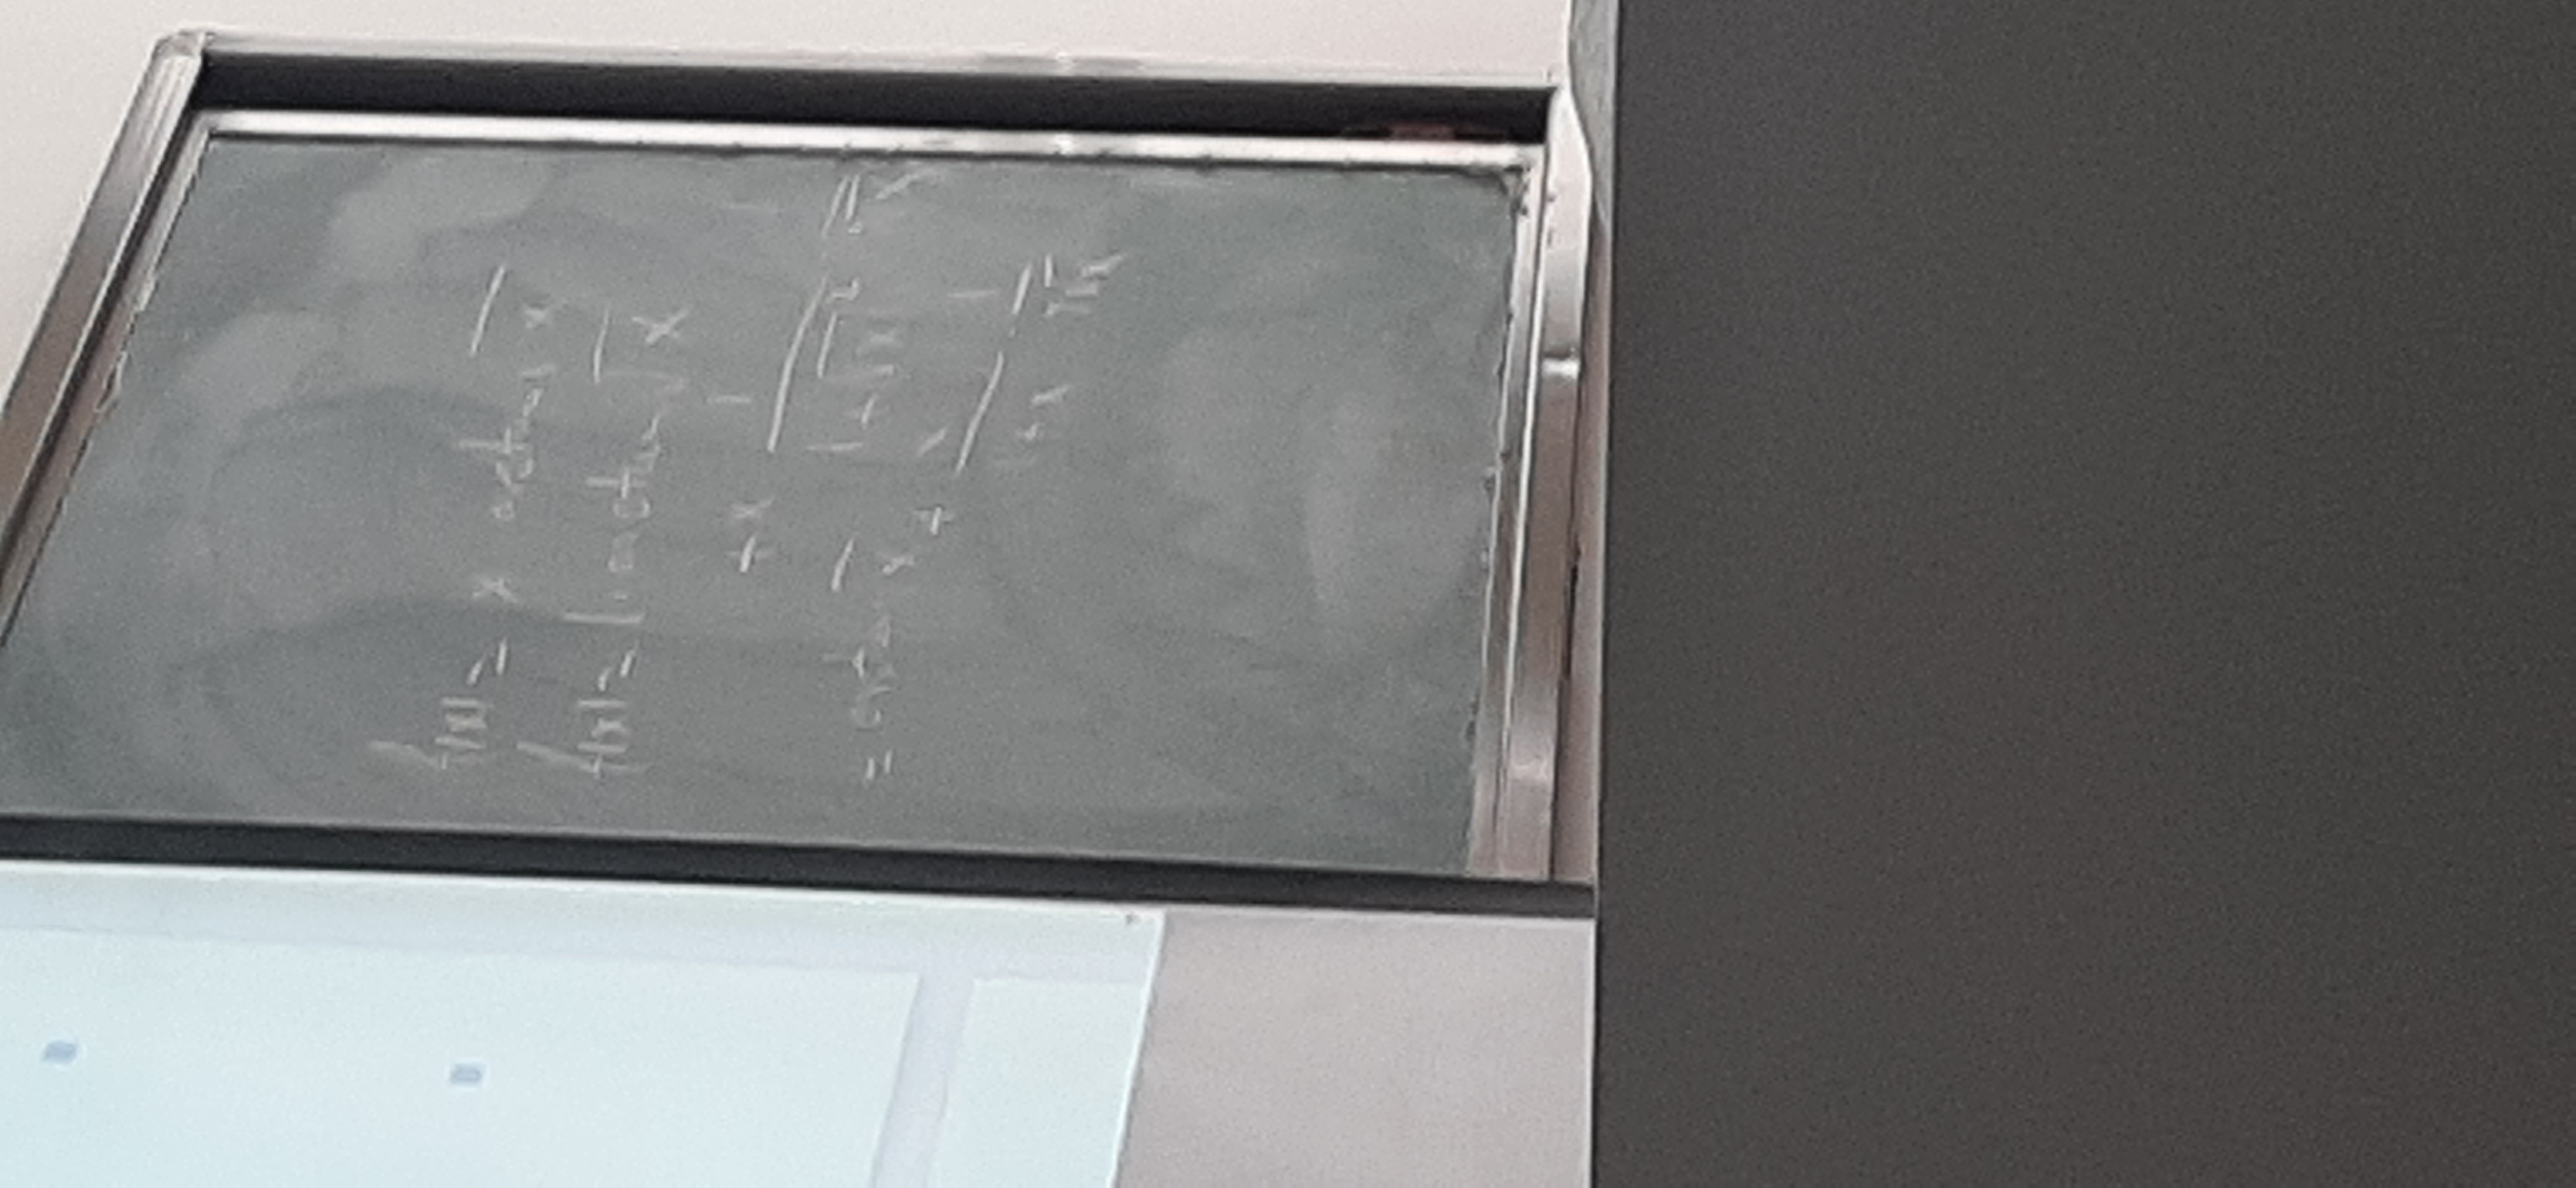 f(x) = x arctan √x
f'(x) = 1 · arctan √x
+ x 1/(1 + √x²) 1/√x
= arctan √x + x/(1+x) 1/(2√x)